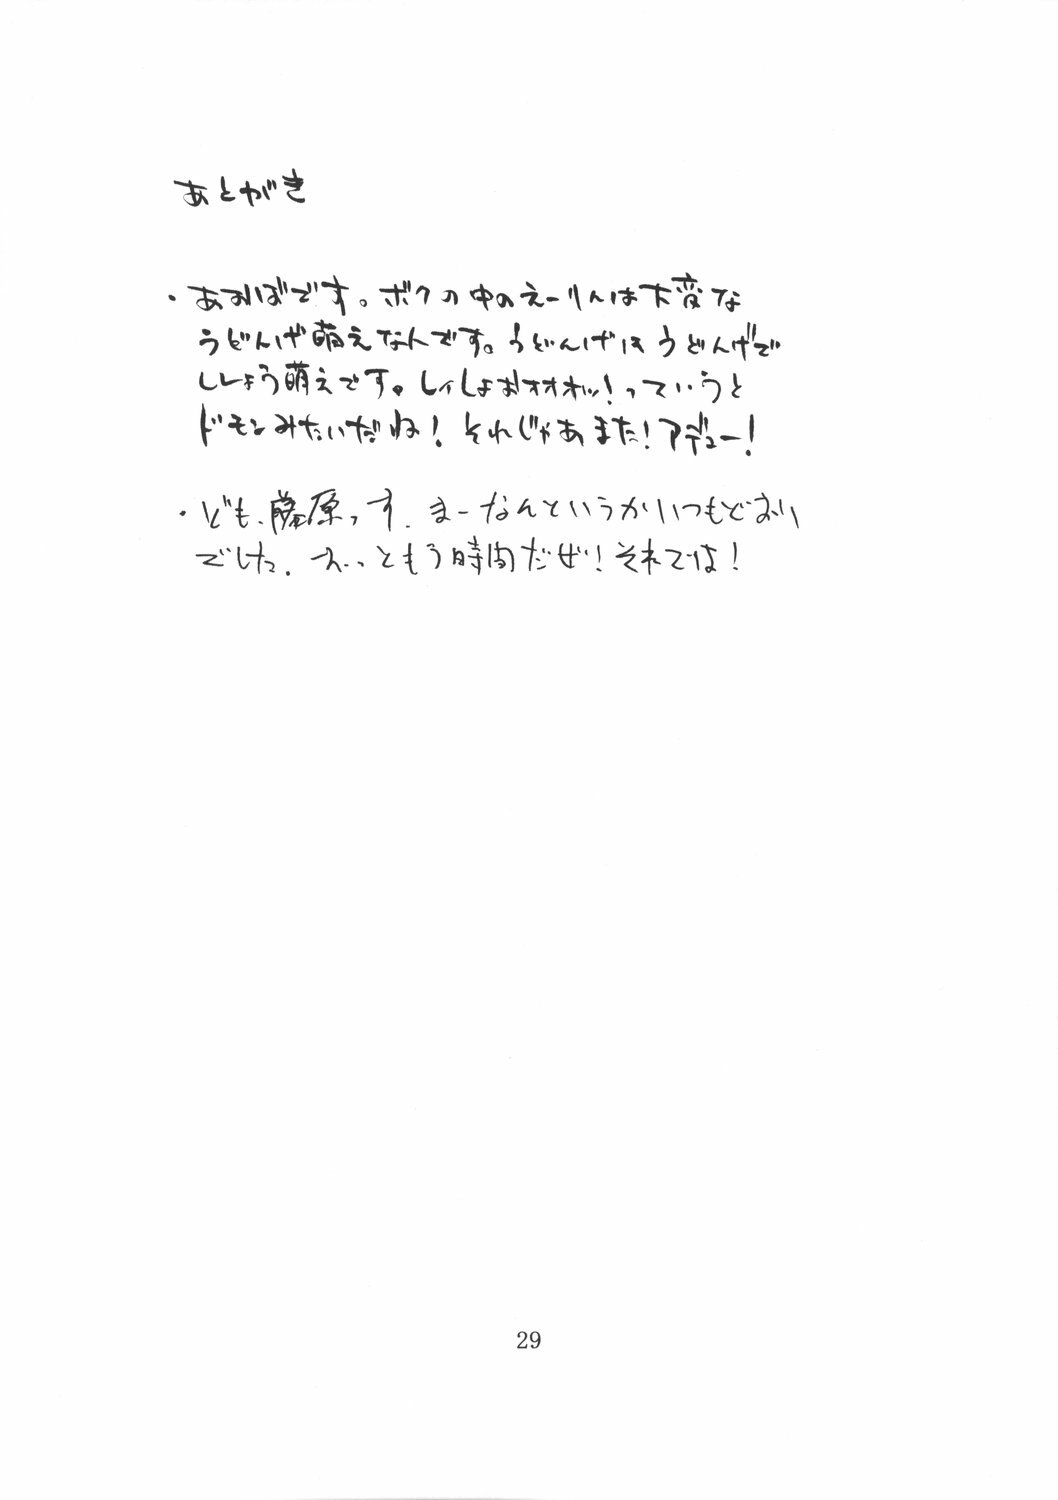 あとがき
・あおばです。ボクの中のえーりんは大変な
うどんげ萌えなんです。うどんげはうどんげで
ししょう萌えです。しィしょおォオオッ!っていうと
ドモンみたいだね!それじゃあまた!アデュー!
・ども、藤原っす.まーなんというかいつもどおり
でした.えっともう時間だぜ!それでは!
29